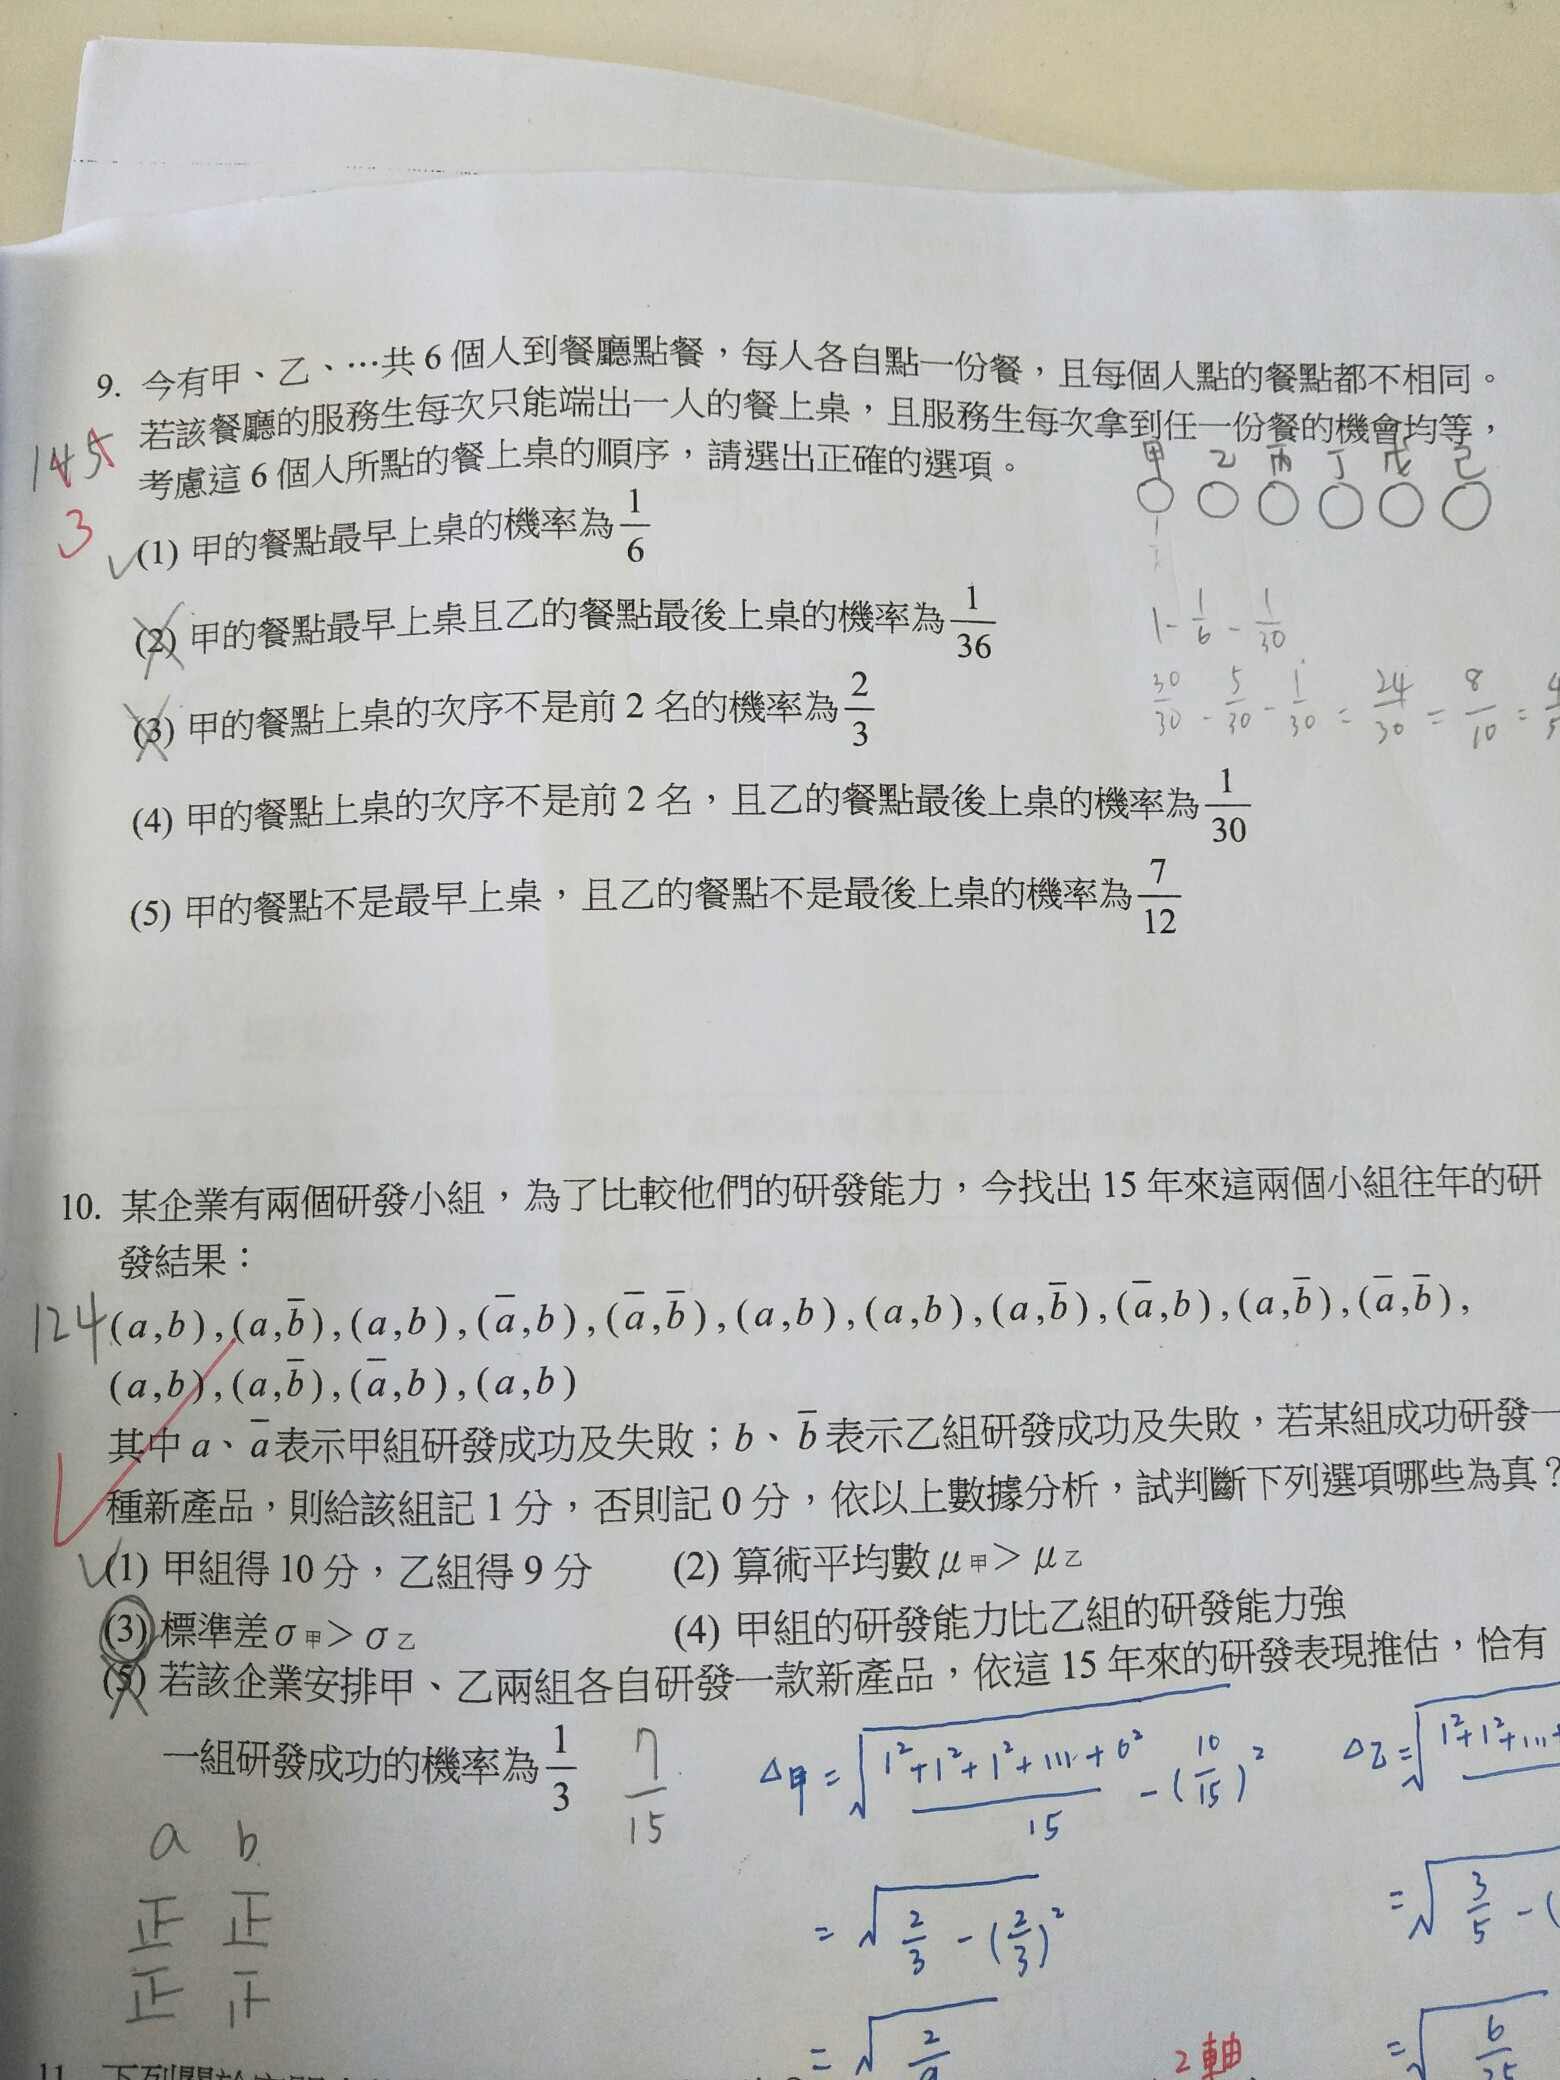 9. 今有甲、乙、…共 6 個人到餐廳點餐，每人各自點一份餐，且每個人點的餐點都不相同。
若該餐廳的服務生每次只能端出一人的餐上桌，且服務生每次拿到任一份餐的機會均等，
考慮這 6 個人所點的餐上桌的順序，請選出正確的選項。
145
3
甲 乙 丙 丁 戊 己
(1) 甲的餐點最早上桌的機率為 1/6
(2) 甲的餐點最早上桌且乙的餐點最後上桌的機率為 1/36
1 - 1/6 - 1/30
(3) 甲的餐點上桌的次序不是前 2 名的機率為 2/3
30/30 - 5/30 - 1/30 = 24/30 = 8/10 = 4/5
(4) 甲的餐點上桌的次序不是前 2 名，且乙的餐點最後上桌的機率為 1/30
(5) 甲的餐點不是最早上桌，且乙的餐點不是最後上桌的機率為 7/12
10. 某企業有兩個研發小組，為了比較他們的研發能力，今找出 15 年來這兩個小組往年的研
發結果：
124
(a,b), (a,b̅), (a,b), (a̅,b), (a̅,b̅), (a,b), (a,b), (a,b̅), (a̅,b), (a,b̅), (a̅,b̅),
(a,b), (a,b̅), (a̅,b), (a,b)
其中 a、a̅ 表示甲組研發成功及失敗；b、b̅ 表示乙組研發成功及失敗，若某組成功研發一
種新產品，則給該組記 1 分，否則記 0 分，依以上數據分析，試判斷下列選項哪些為真？
(1) 甲組得 10 分，乙組得 9 分 (2) 算術平均數 μ甲 > μ乙
(3) 標準差 σ甲 > σ乙 (4) 甲組的研發能力比乙組的研發能力強
(5) 若該企業安排甲、乙兩組各自研發一款新產品，依這 15 年來的研發表現推估，恰有
一組研發成功的機率為 1/3
7/15
a b
正 正
正
= √(2/3 - (2/3)²)
= √(2/9
2軸
11. 下列關於空間